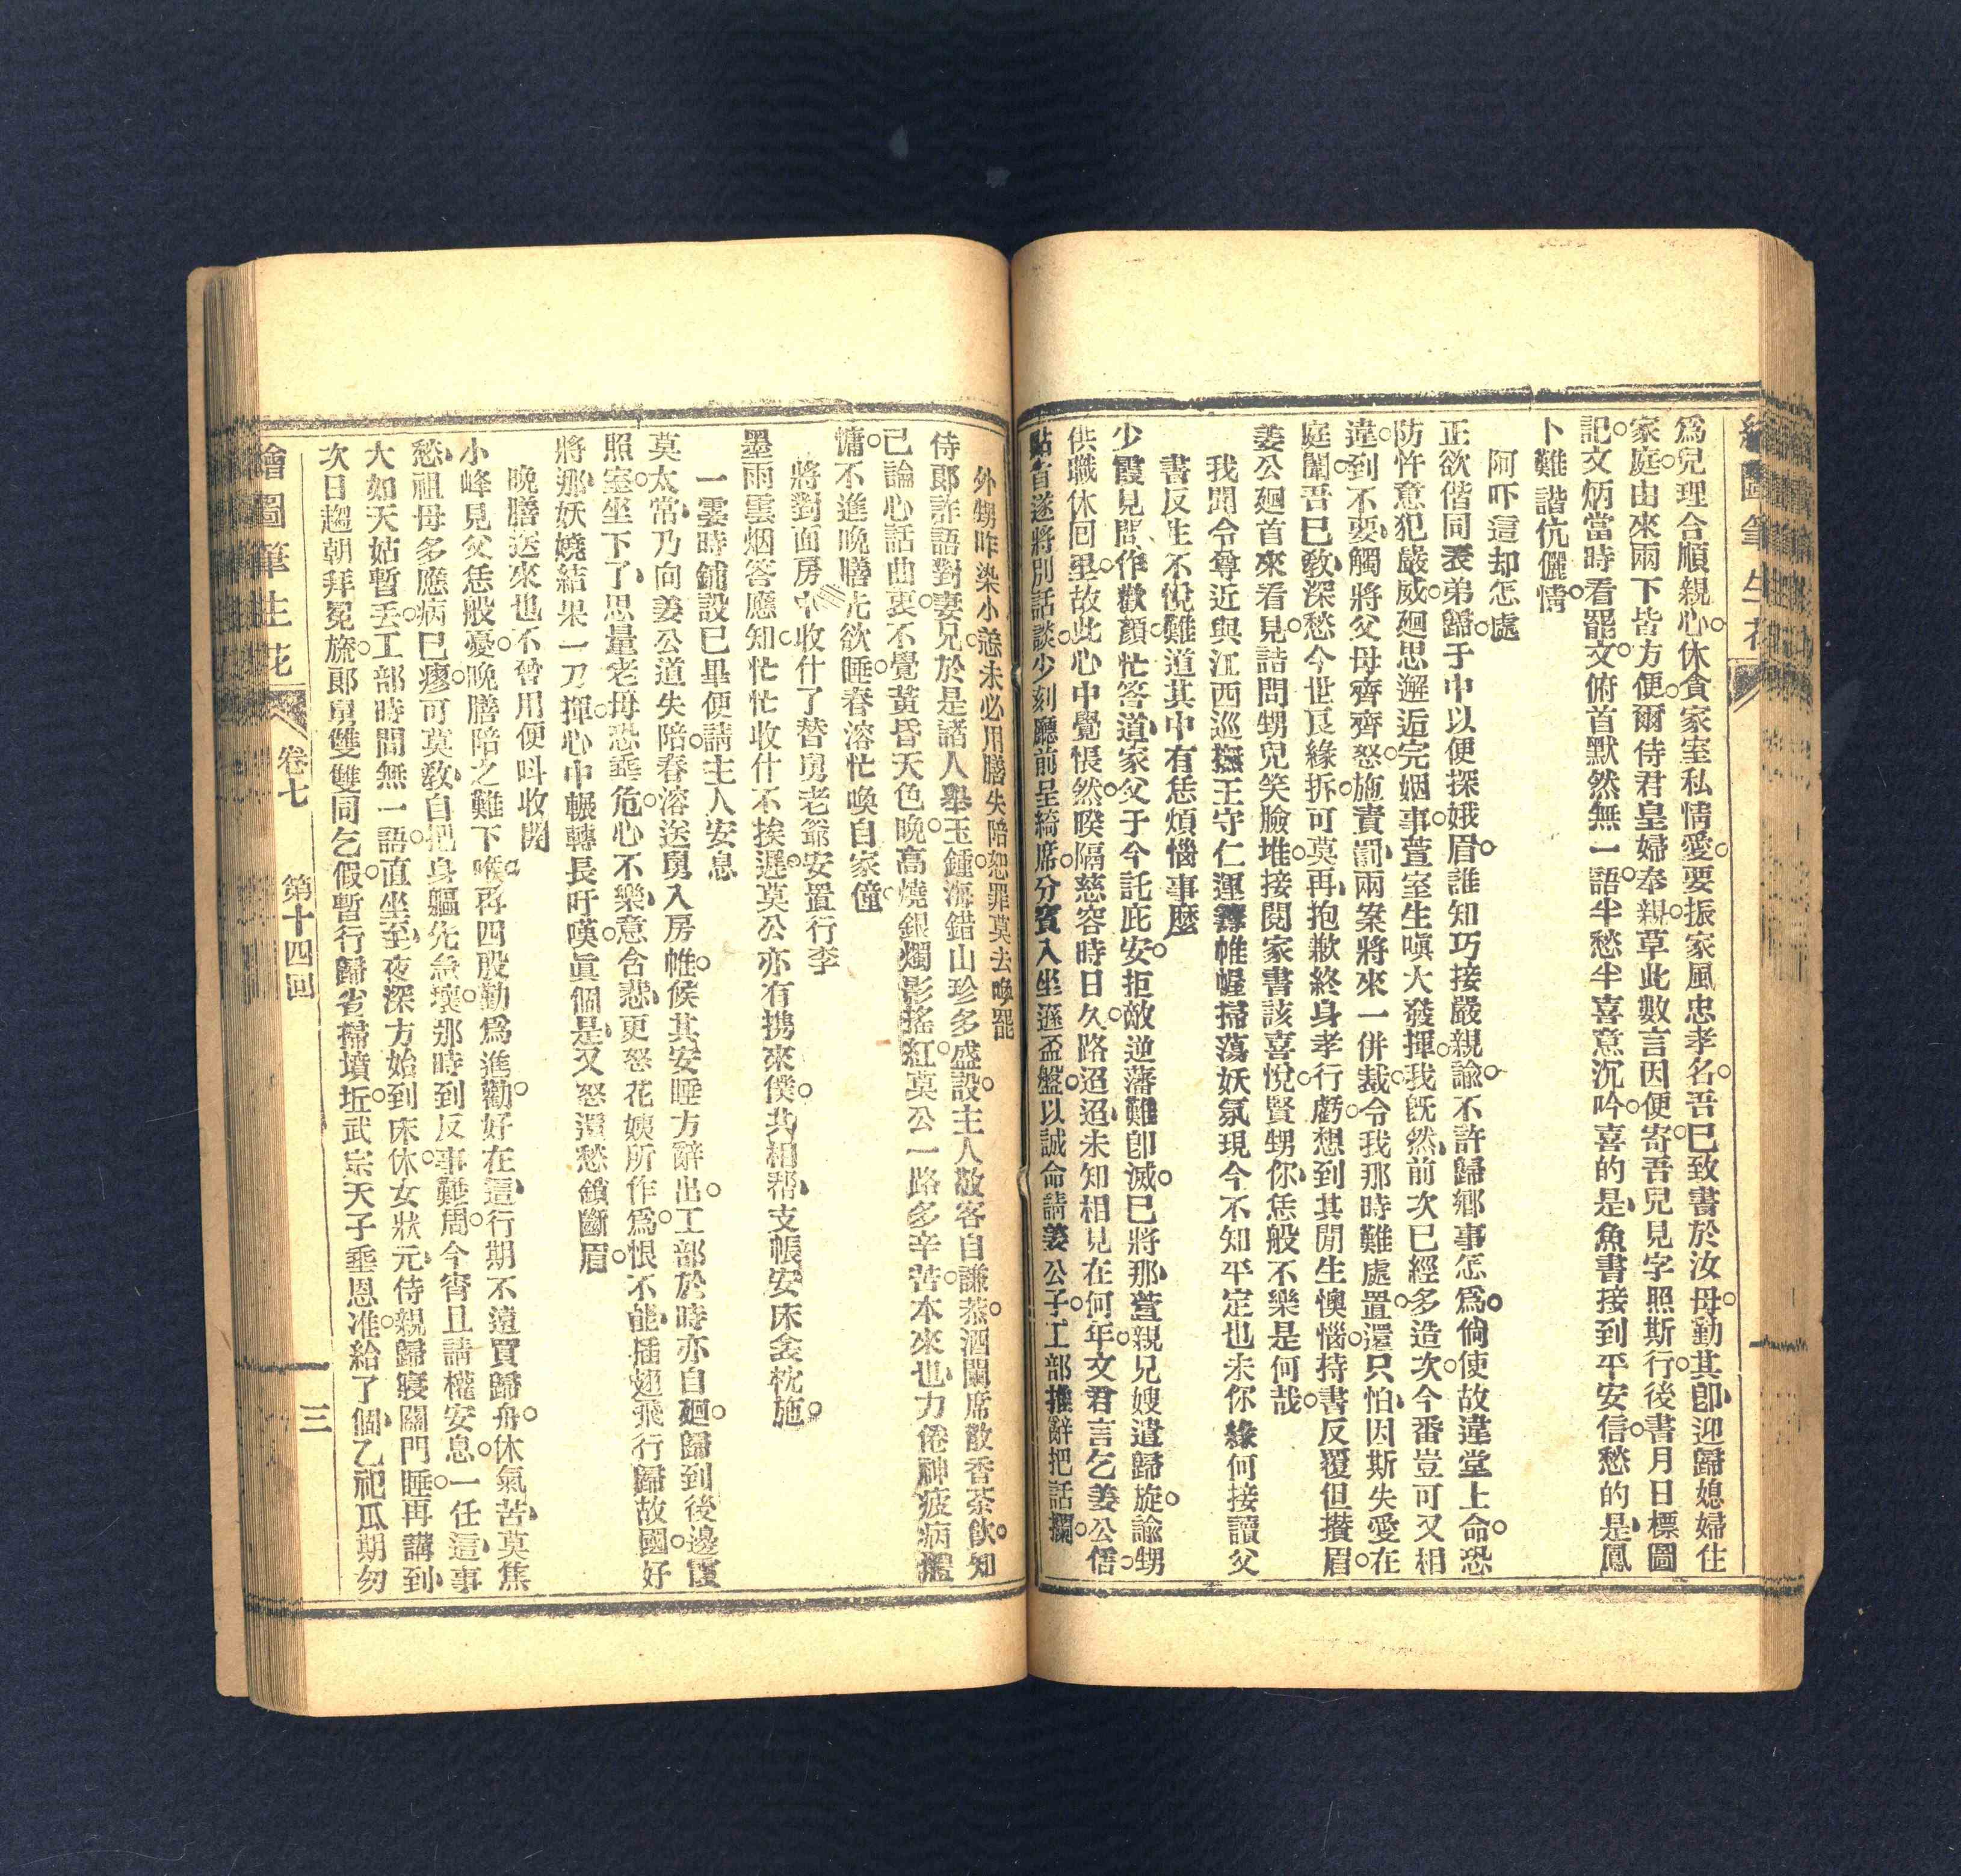 繪圖筆生花
爲兒理合順親心。休貪家室私情愛。要振家風忠孝名。吾已致書於汝母。勤其卽迎歸媳婦住
家庭。由來兩下皆方便。爾侍君皇婦奉親。草此數言因便寄。吾兒見字照斯行。後書月日標圖
記。文炳當時看罷文。俯首默然無一語。半愁半喜意沉吟。喜的是魚書接到平安信。愁的是鳳
卜難諧伉儷情。
阿吓這却怎處
正欲偕同表弟歸。于中以便探娥眉。誰知巧接嚴親諭。不許歸鄉事怎爲。倘使故違堂上命。恐
防忤意犯嚴威。廻思邂逅完姻事。萱室生嗔大發揮。我旣然前次已經多造次。今番豈可又相
違。到不要觸將父母齊齊怒。施責罰兩案將來一併裁。令我那時難處置。還只怕因斯失愛在
庭闈。吾已敎深愁今世良緣拆。可莫再抱歉終身孝行虧。想到其閒生懊惱。持書反覆但攢眉。
姜公廻首來看見。詰問甥兒笑臉堆。接閱家書該喜悅。賢甥你恁般不樂是何哉。
我聞令尊近與江西巡撫王守仁運籌帷幄掃蕩妖氛現今不知平定也未你緣何接讀父
書反生不悅難道其中有恁煩惱事麼
少霞見問作歡顏。忙答道家父于今託庇安。拒敵逆藩難卽滅。已將那萱親兄嫂遣歸旋。諭甥
供職休回里。故此心中覺悵然。暌隔慈容時日久。路迢迢未知相見在何年。文君言乞姜公信。
點首遂將別話談。少刻廳前呈綺席。分賓入坐遜盃盤。以誠命請姜公子。工部推辭把話攔。
外甥昨染小恙未必用膳失陪恕罪莫去喚罷
侍郞詐語對妻兄。於是諸人舉玉鍾。海錯山珍多盛設。主人敬客自謙恭。酒闌席散香茶飲。知
己論心話曲衷。不覺黃昏天色晚。高燒銀燭影搖紅。莫公一路多辛苦。本來也力倦神疲病體
慵。不進晚膳先欲睡。春溶忙喚自家僮。
將對面房中收什了替舅老爺安置行李
墨雨雲烟答應知。忙忙收什不挨遲。莫公亦有携來僕。共相帮支帳安床衾枕施。
一霎時鋪設已畢便請主人安息
莫太常乃向姜公道失陪。春溶送舅入房帷。候其安睡方辭出。工部於時亦自廻。歸到後邊霞
照室。坐下了思量老母恐垂危。心不樂意含悲。更怒花姨所作爲。恨不能插翅飛行歸故國。好
將那妖嬈結果一刀揮。心中輾轉長吁嘆。眞個是又怒還愁鎖斷眉。
晚膳送來也不曾用便呌收開
小峰見父恁般憂。晚膳陪之難下喉。再四殷勤爲進勸。好在這行期不遠買歸舟。休氣苦莫焦
愁。祖母多應病已瘳。可莫敎自把身軀先急壞。那時到反事難周。今宵且請權安息。一任這事
大如天姑暫丟。工部時間無一語。直坐至夜深方始到床休。女狀元侍親歸寢關門睡。再講到
次日趨朝拜冕旒。郞舅雙雙同乞假。暫行歸省掃墳坵。武宗天子垂恩准。給了個乙祀瓜期勿
繪圖筆生花 卷七 第十四回 三